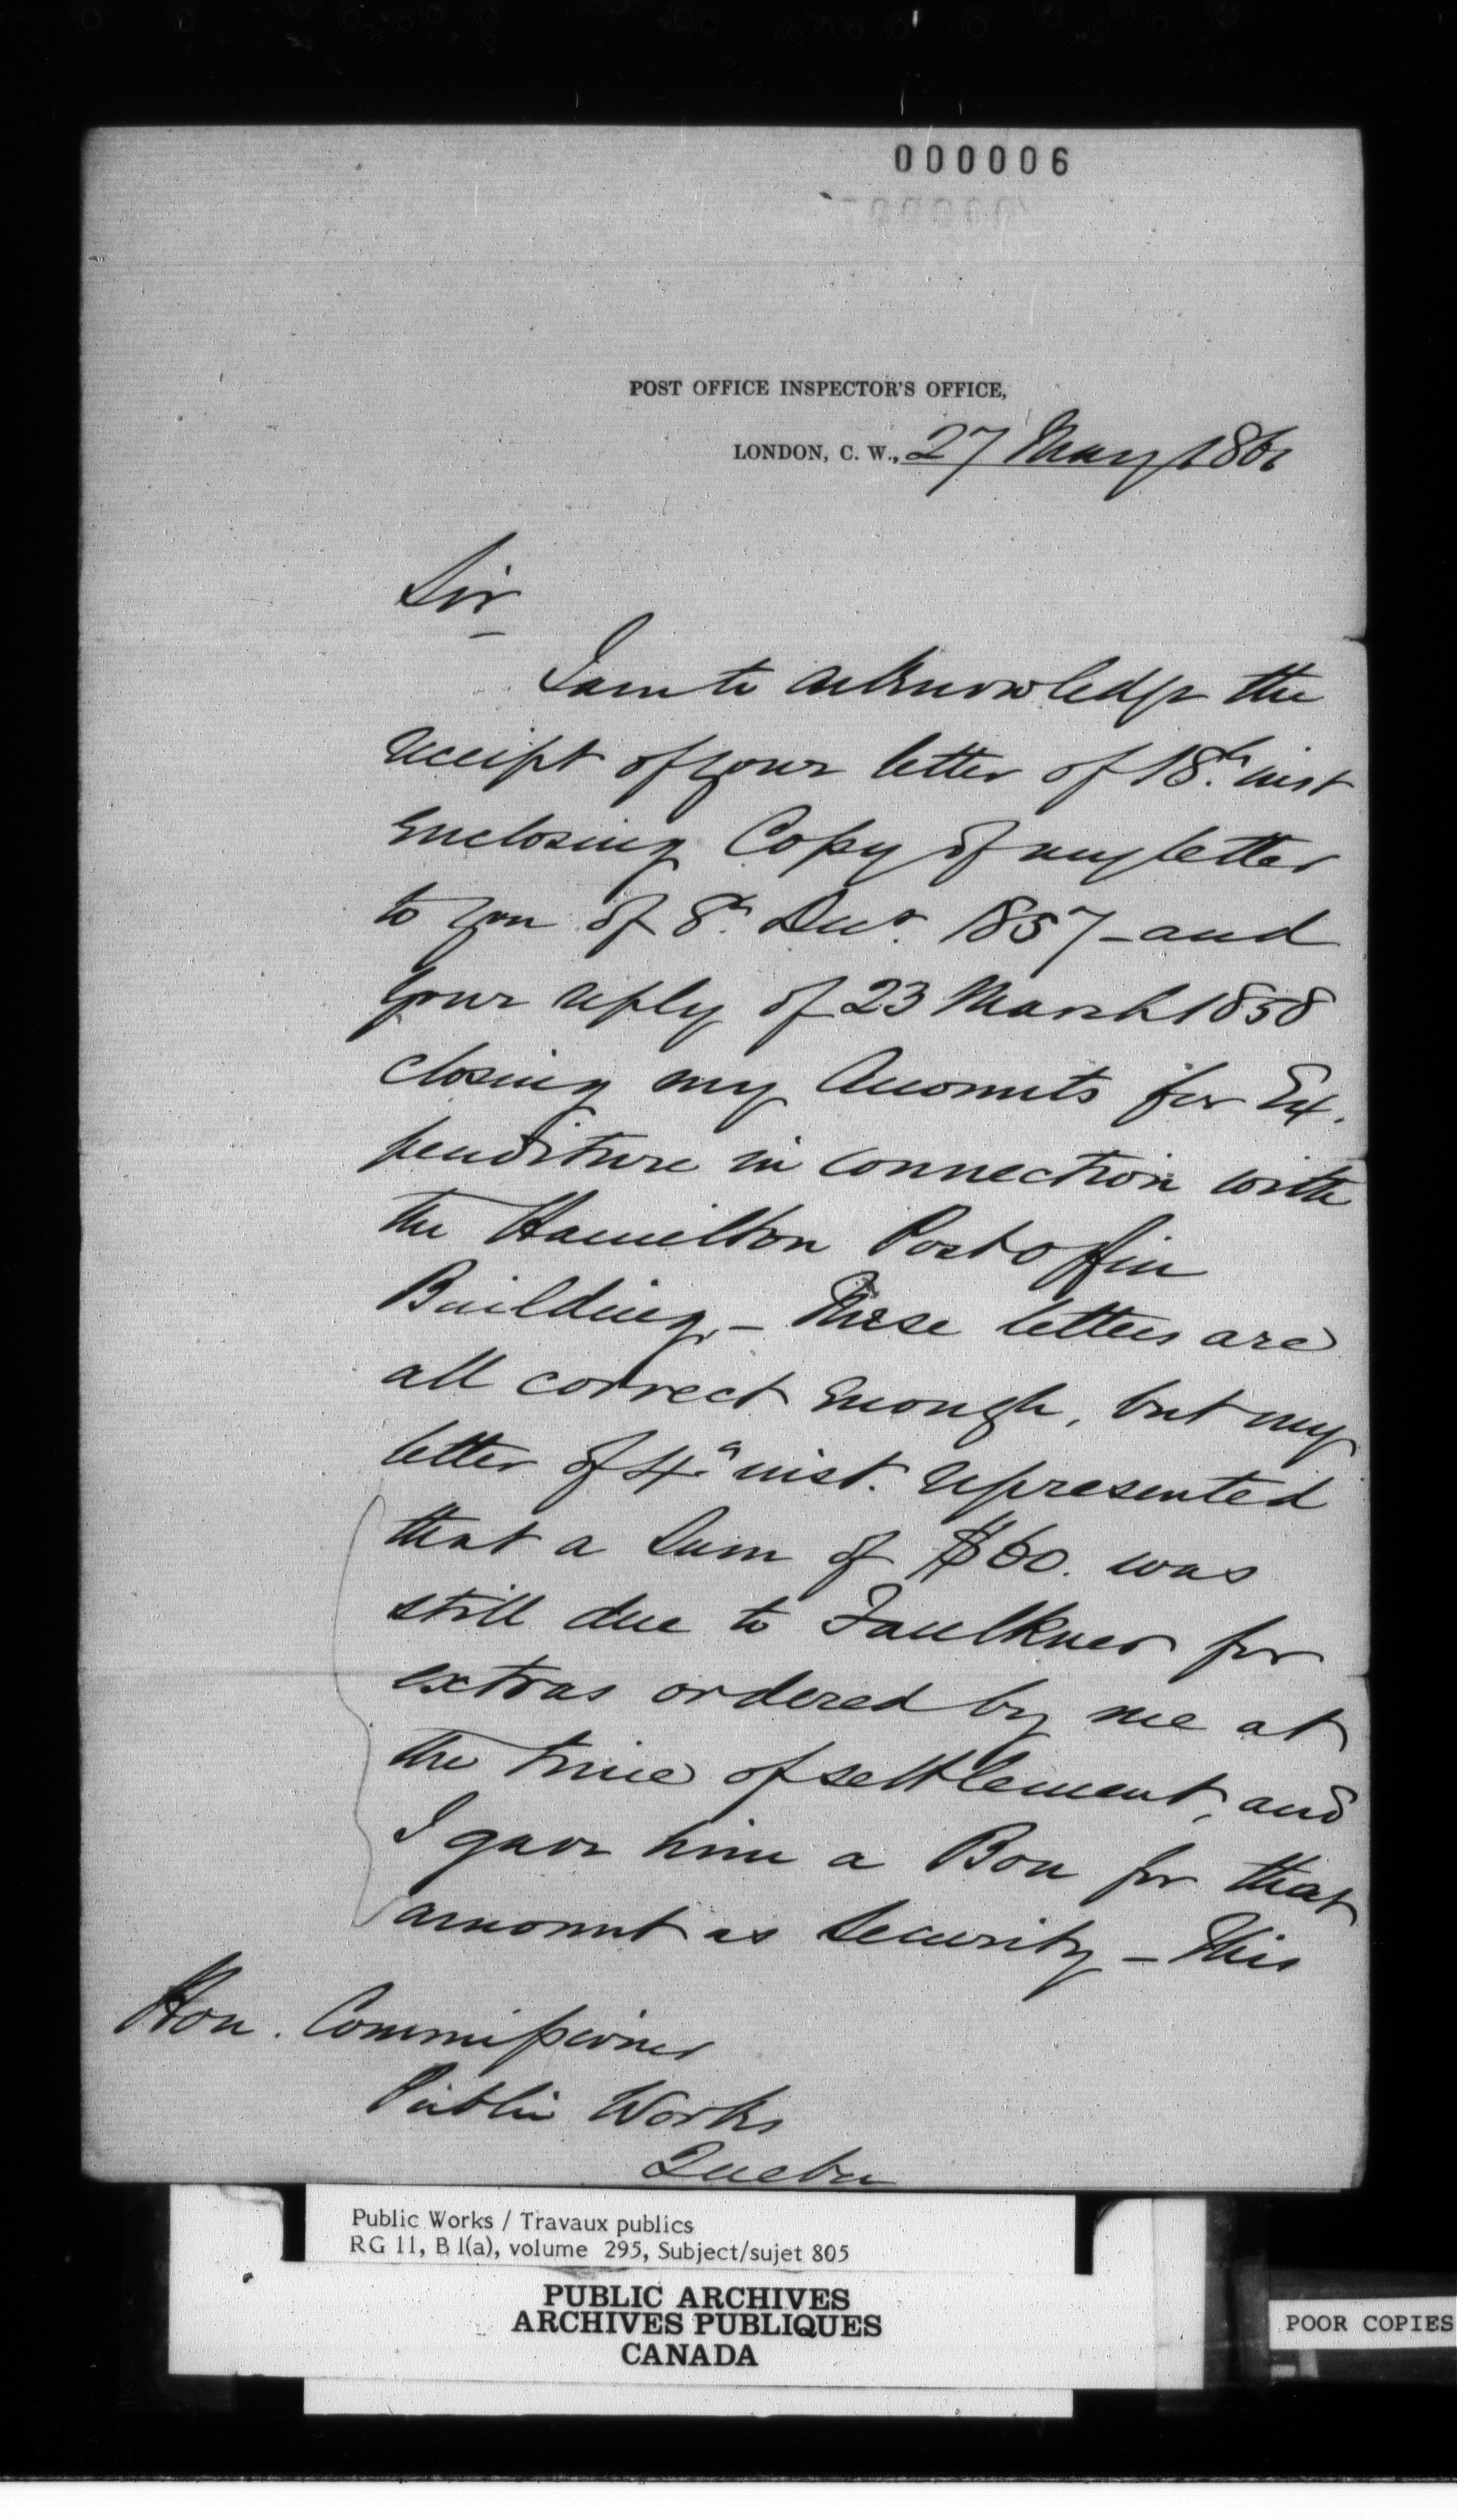 000006
POST OFFICE INSPECTOR'S OFFICE,
LONDON, C. W., 27 May 1861
Sir
I am to acknowledge the
receipt of your letter of 18th inst
enclosing Copy of my letter
to you of 8th Decr. 1857 - and
your reply of 23 March 1858
closing my Accounts for Ex-
penditure in connection with
the Hamilton Post Office
Building. - These letters are
all correct enough, but my
letter of 4th inst. represented
that a Sum of $60. was
still due to Faulkner for
extras ordered by me at
the time of settlement, and
I gave him a Bon for that
amount as Security - This
Hon. Commissioner
Public Works
Quebec
Public Works / Travaux publics
RG 11, B 1(a), volume 295, Subject/sujet 805
PUBLIC ARCHIVES
ARCHIVES PUBLIQUES
CANADA
POOR COPIES